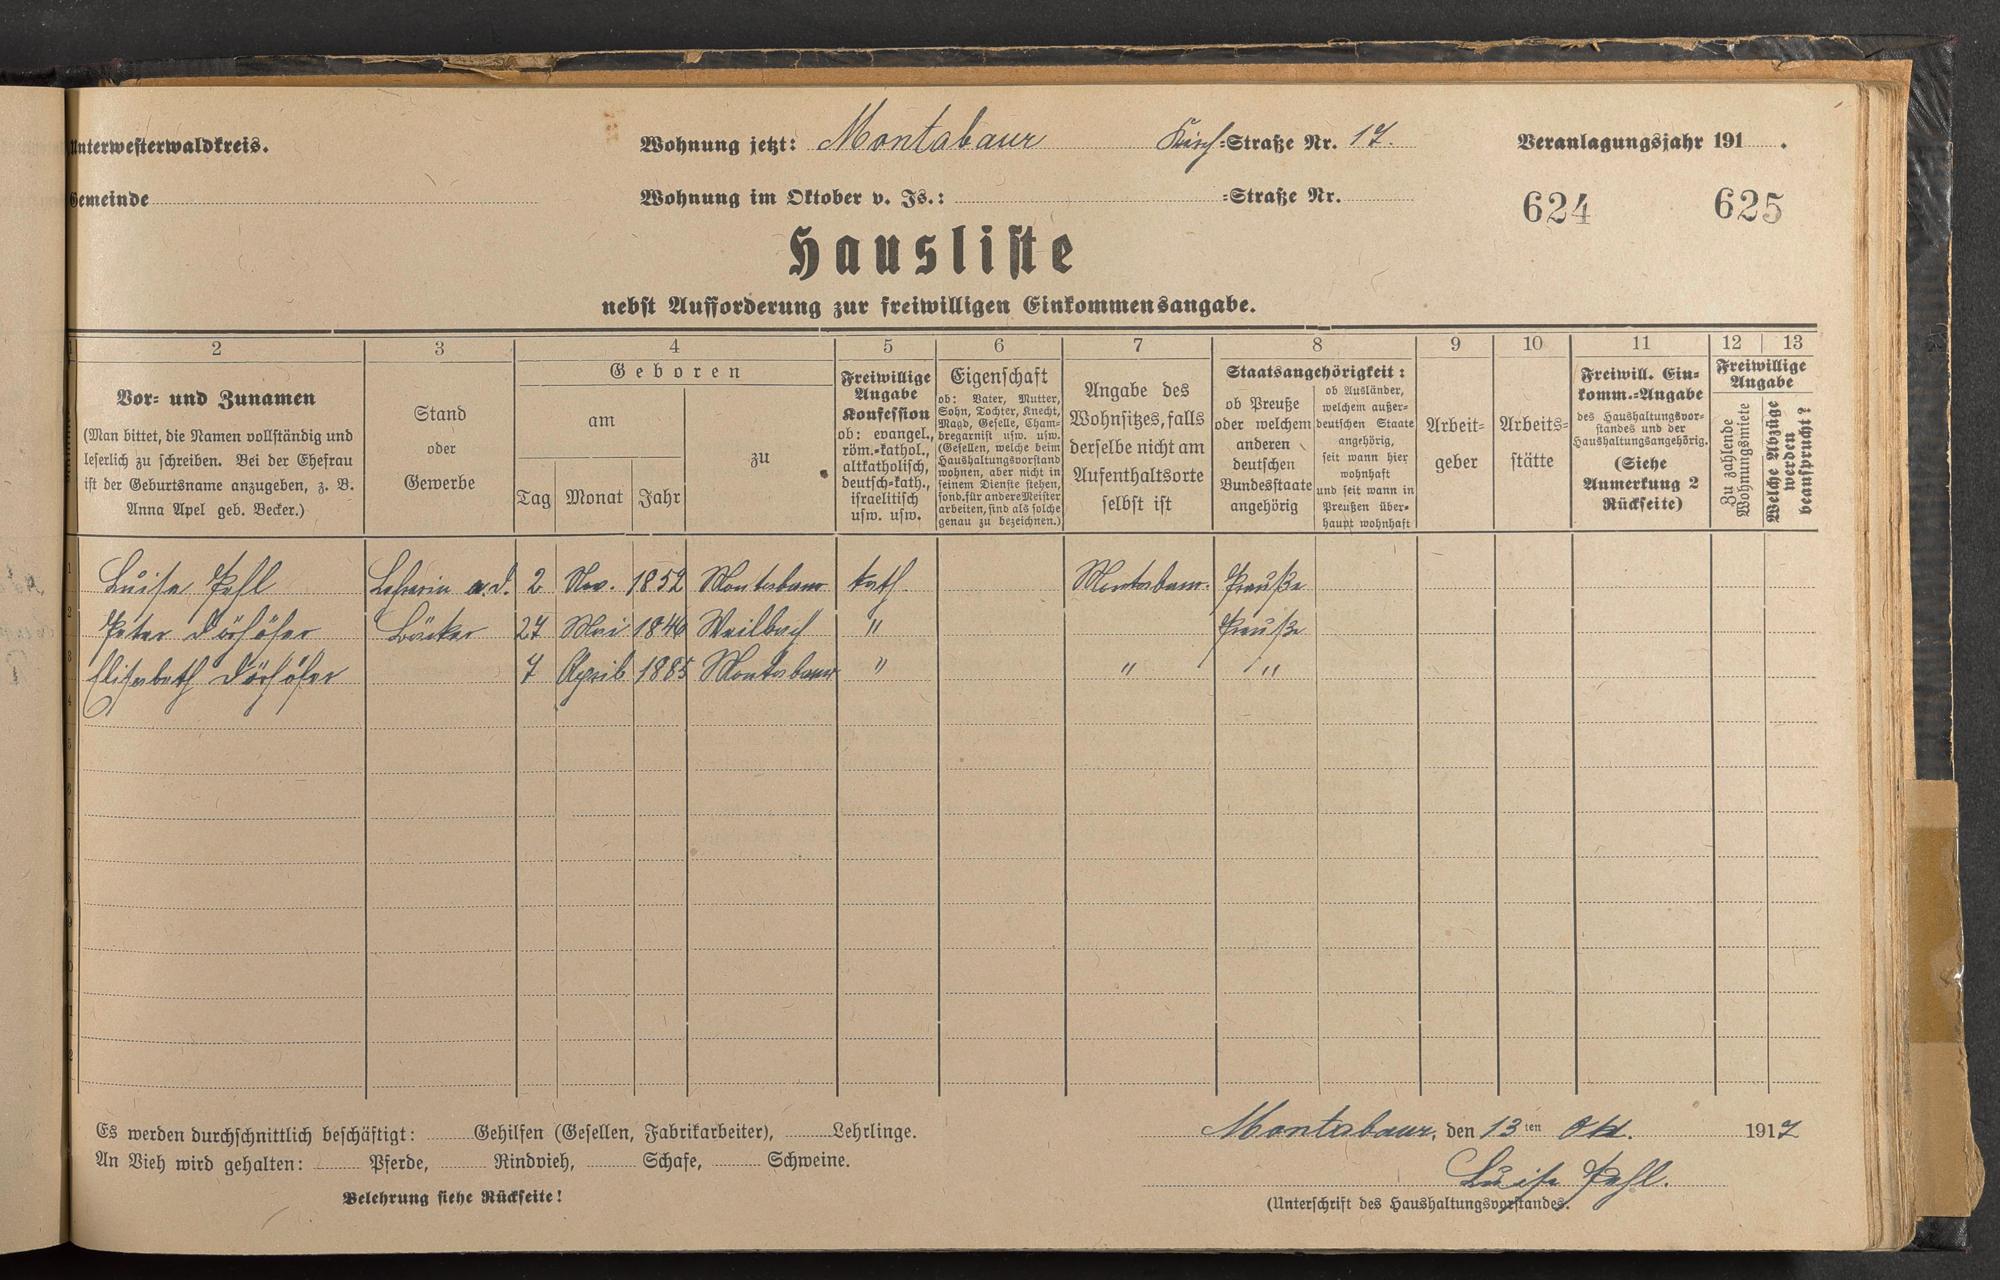 Unterwesterwaldkreis. Wohnung jetzt: Montabaur Kirch-Straße Nr. 17. Veranlagungsjahr 191 .
Gemeinde Wohnung im Oktober v. Js.: -Straße Nr. 624 625
Hausliste
nebst Aufforderung zur freiwilligen Einkommensangabe.
2 3 4 5 6 7 8 9 10 11 12 13
Vor- und Zunamen
(Man bittet, die Namen vollständig und
leserlich zu schreiben. Bei der Ehefrau
ist der Geburtsname anzugeben, z. B.
Anna Apel geb. Becker.)
Stand
oder
Gewerbe
Geboren
am
Tag Monat Jahr
zu
Freiwillige
Angabe
Konfession
ob: evangel.,
röm.-kathol.,
altkatholisch,
deutsch-kath.,
israelitisch
usw. usw.
Eigenschaft
ob: Vater, Mutter,
Sohn, Tochter, Knecht,
Magd, Geselle, Cham-
bregarnist usw. usw.
(Gesellen, welche beim
Haushaltungsvorstand
wohnen, aber nicht in
seinem Dienste stehen,
sond. für andere Meister
arbeiten, sind als solche
genau zu bezeichnen.)
Angabe des
Wohnsitzes, falls
derselbe nicht am
Aufenthaltsorte
selbst ist
Staatsangehörigkeit:
ob Preuße
oder welchem
anderen
deutschen
Bundesstaate
angehörig
ob Ausländer,
welchem außer-
deutschen Staate
angehörig,
seit wann hier
wohnhaft
und seit wann in
Preußen über-
haupt wohnhaft
Arbeit-
geber
Arbeits-
stätte
Freiwill. Ein-
komm.-Angabe
des Haushaltungsvor-
standes und der
Haushaltungsangehörig.
(Siehe
Anmerkung 2
Rückseite)
Freiwillige
Angabe
Zu zahlende
Wohnungsmiete
Welche Abzüge
werden
beansprucht?
1 Luise Pehl Lehrerin a.d. 2 Nov. 1852 Montabaur kath. Montabaur. Preuße
2 Peter Dörhöfer Bäcker 27 Mai 1846 Weilbach " Preuße
3 Elisabeth Dörhöfer 7 April 1885 Montabaur " " "
4
5
6
7
8
9
0
1
2
Es werden durchschnittlich beschäftigt: Gehilfen (Gesellen, Fabrikarbeiter), Lehrlinge.
An Vieh wird gehalten: Pferde, Rindvieh, Schafe, Schweine.
Belehrung siehe Rückseite!
Montabaur, den 13ten Okt. 1917
Luise Pehl.
(Unterschrift des Haushaltungsvorstandes.